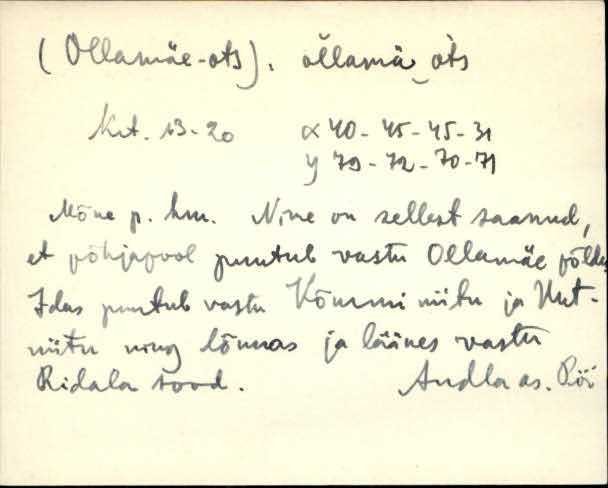 (Ollamäe-ots). ŏllamä‿ot̀s
Krt. 13-20 x 40 - 45 - 45 - 31
y 79 - 72 - 70 - 71
Mõne p. hm. Nime on sellest saanud,
et põhjapool puutub vastu Ollamäe põldu
Idas puutub vastu Kõnnu niitu ja Uut-
niitu ning lõunas ja läänes vastu
Ridala sood. Andla as. Pöi